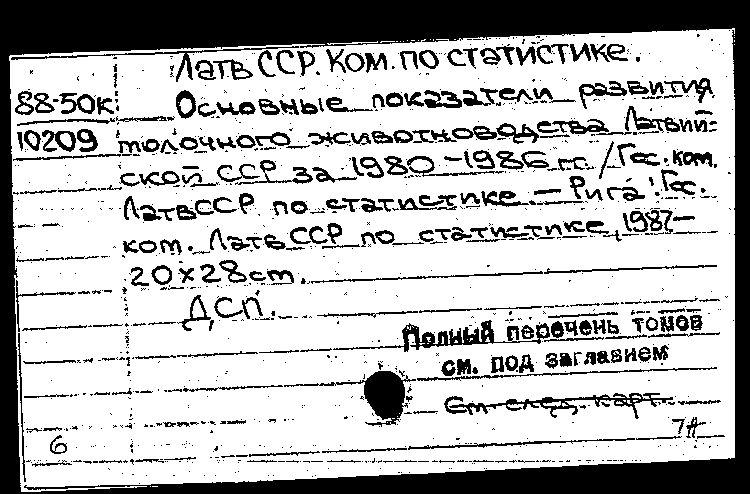 Латв ССР. Ком. по статистике.
88-50к Основные показатели развития
10209 молочного животноводства Латвий-
ской ССР за 1980-1986 гг. / Гос. ком.
ЛатвССР по статистике. — Рига: Гос.
ком. Латв ССР по статистике, 1987—
20х28см.
ДСП.
Полный перечень томов
см. под заглавием
См. след. карт.
6 7А